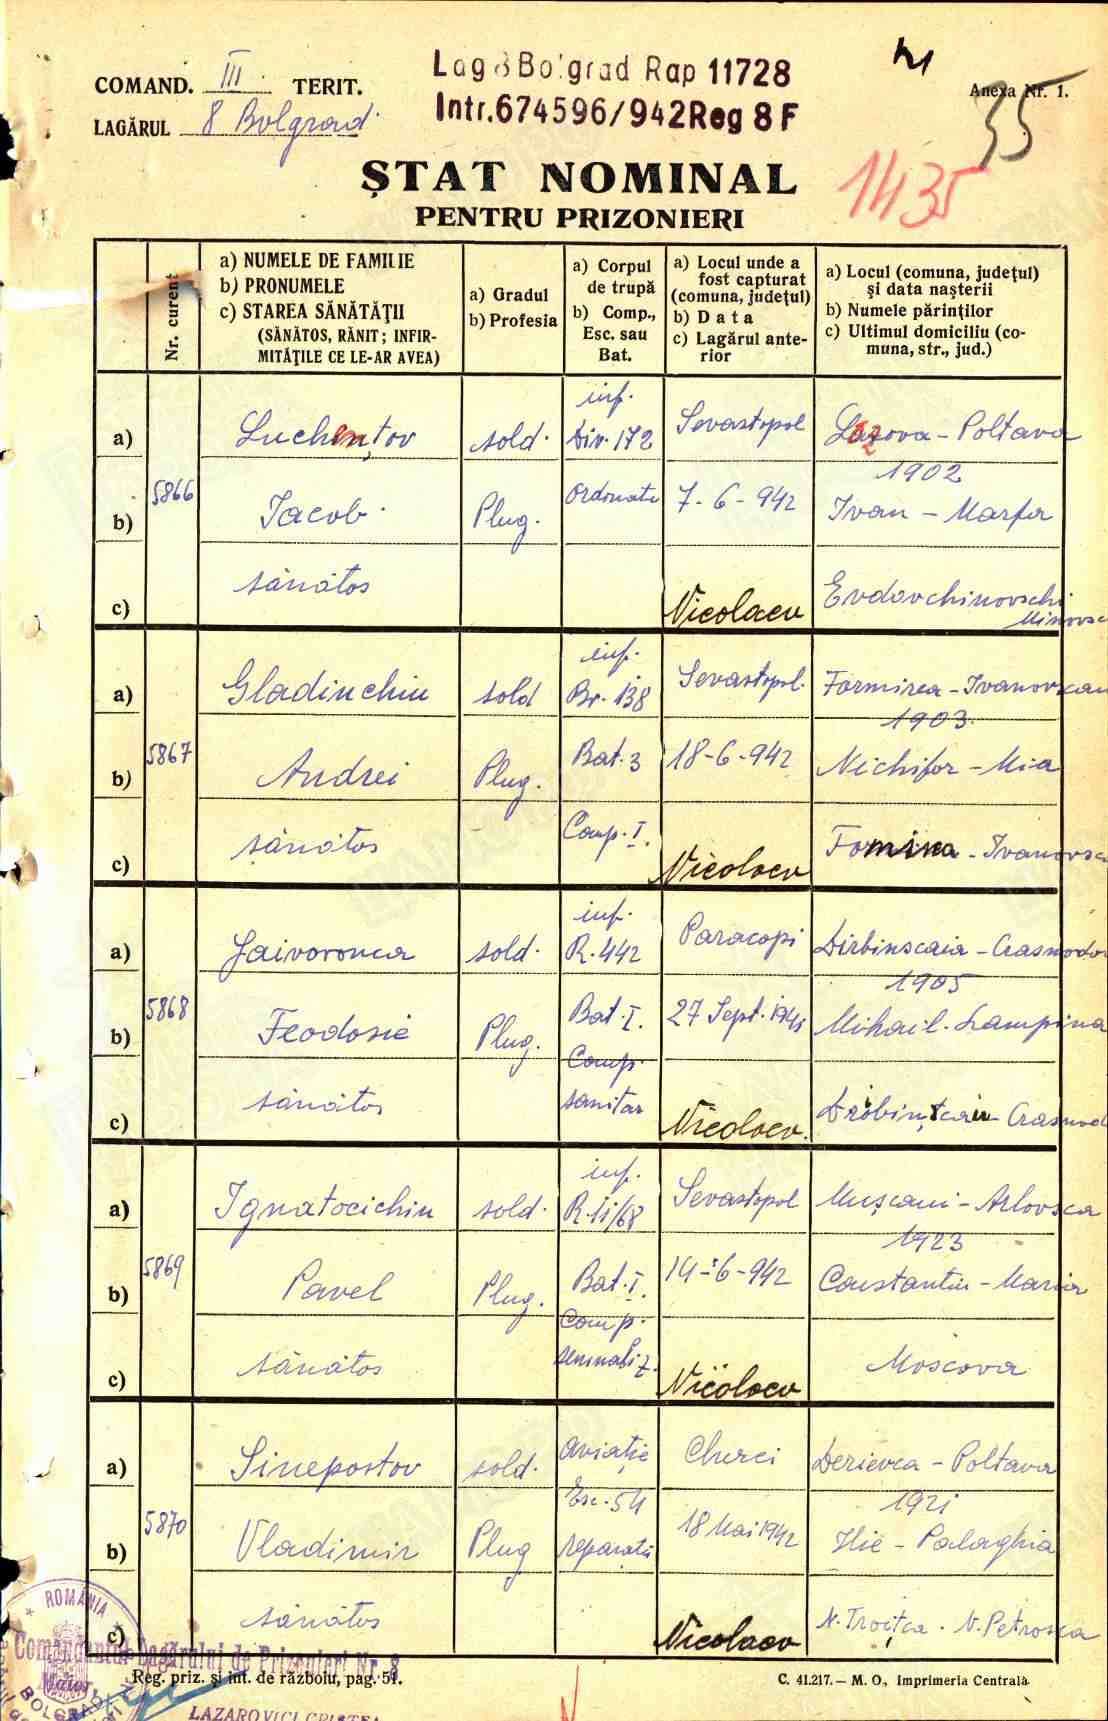 COMAND. III TERIT.
LAGĂRUL 8 Bolgrad
Lag 8 Bolgrad Rap 11728
Intr.674596/942 Reg 8 F
Anexa Nr. 1.
35
1435
ȘTAT NOMINAL
PENTRU PRIZONIERI
Nr. curent
a) NUMELE DE FAMILIE
b) PRONUMELE
c) STAREA SĂNĂTĂȚII
(SĂNĂTOS, RĂNIT; INFIR-
MITĂȚILE CE LE-AR AVEA)
a) Gradul
b) Profesia
a) Corpul
de trupă
b) Comp.,
Esc. sau
Bat.
a) Locul unde a
fost capturat
(comuna, județul)
b) Data
c) Lagărul ante-
rior
a) Locul (comuna, județul)
și data nașterii
b) Numele părinților
c) Ultimul domiciliu (co-
muna, str., jud.)
5866
a) sold. inf. Div. 172 Sevastopol Poltava
1902
b) Iacob Plug. 7-6-942 Ivan - Marfa
c) sănătos Nicolaev
5867
a) Gladinchin sold inf. Br. 138 Sevastopol.
1903
b) Andrei Plug. Bat. 3 18-6-942 Nichifor - Mia
c) sănătos Comp. I. Nicolaev Fomina
5868
a) Gaivoronca sold. inf. R. 442 Paracopi
1905
b) Feodosie Plug. Bat. I. 27 Sept. 1941 Mihail
Comp.
c) sănătos sanitar Nicolaev
5869
a) Ignatocichin sold. inf. Sevastopol
1923
b) Pavel Plug. Bat. I. 14-6-942 Constantin - Maria
Comp.
c) sănătos Nicolaev Moscova
5870
a) Sinepostov sold. Aviație Cherci Derievca - Poltava
Esc. 54 1921
b) Vladimir Plug reparații 18 Mai 1942 Ilie - Palaghia
c) sănătos Nicolaev N. Troițca
ROMÂNIA
Comandantul Lagărului de Prizonieri Nr. 8
Maior
BOLGRAD
LAZAROVICI CRISTEA
Reg. priz. și int. de războiu, pag. 51.
C. 41.217. — M. O., Imprimeria Centrală.